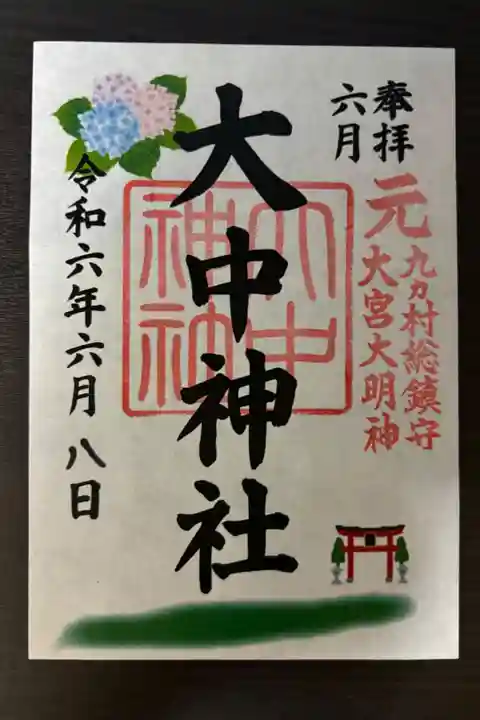 奉拝
六月
元
九カ村総鎮守
大宮大明神
大中神社
大中
神社
令和六年六月八日